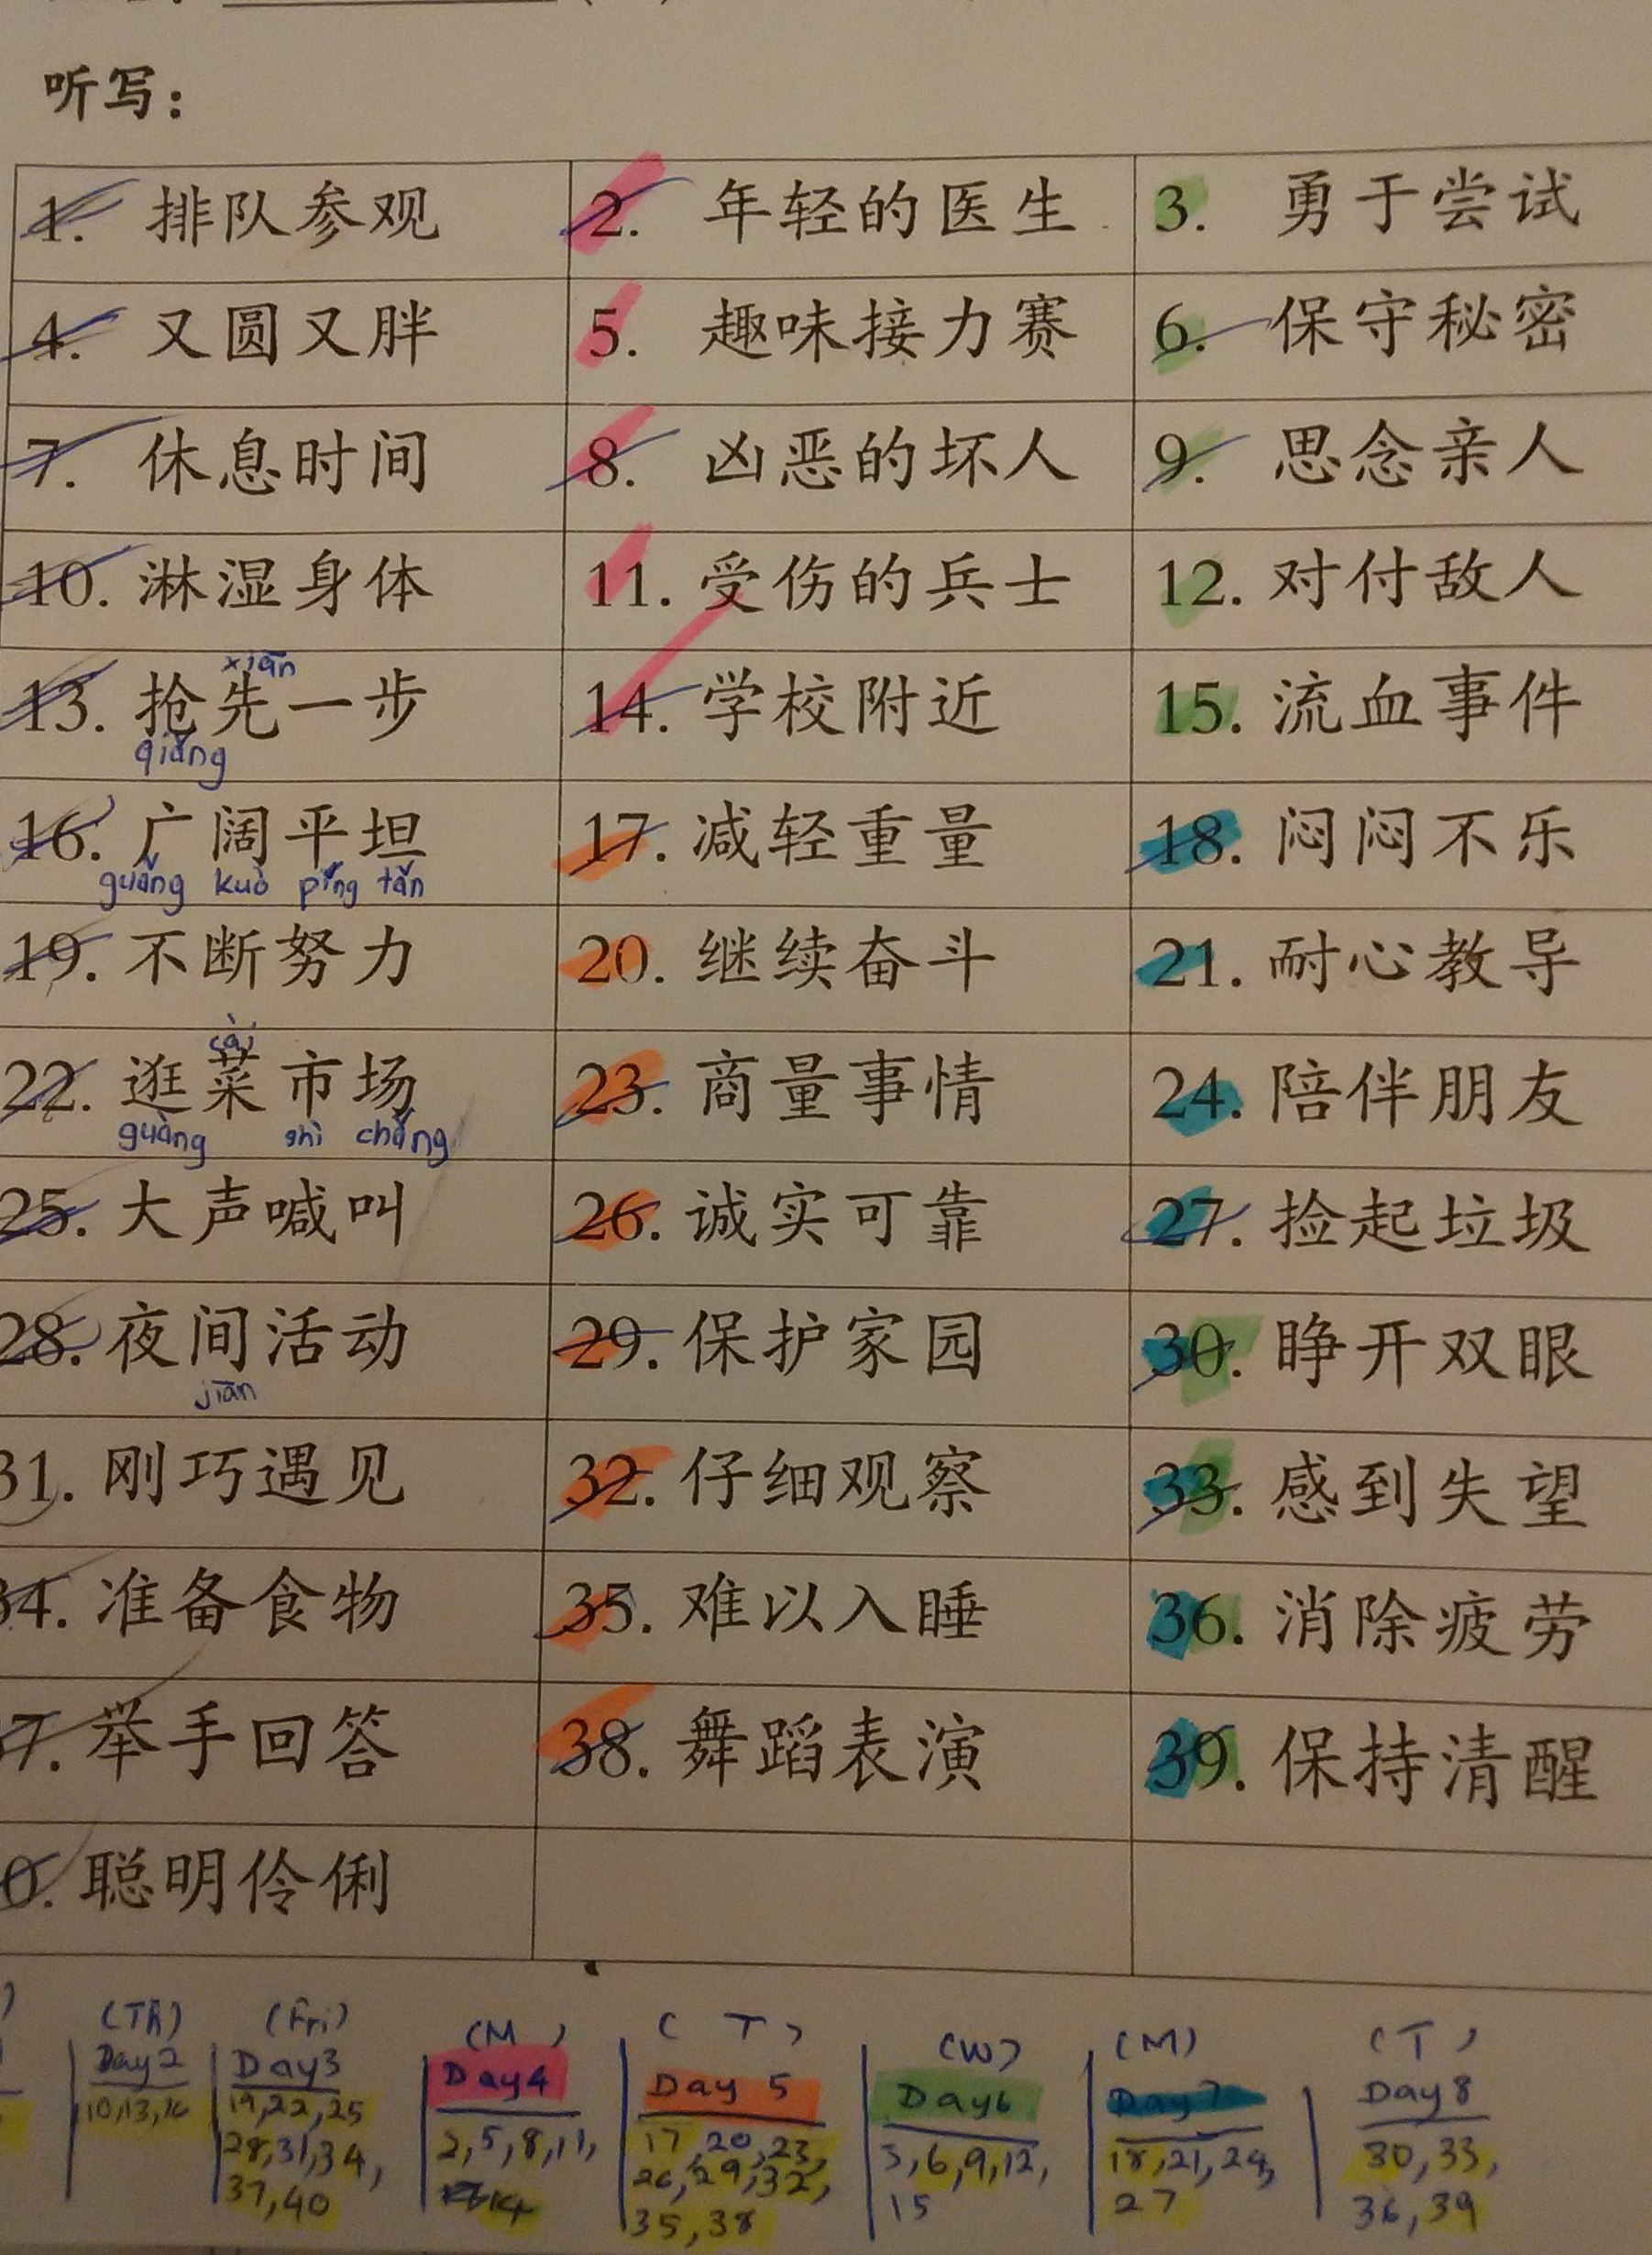 听写：
1. 排队参观 2. 年轻的医生 3. 勇于尝试
4. 又圆又胖 5. 趣味接力赛 6. 保守秘密
7. 休息时间 8. 凶恶的坏人 9. 思念亲人
10. 淋湿身体 11. 受伤的兵士 12. 对付敌人
xiān
13. 抢先一步 14. 学校附近 15. 流血事件
qiǎng
16. 广阔平坦 17. 减轻重量 18. 闷闷不乐
guǎng kuò píng tǎn
19. 不断努力 20. 继续奋斗 21. 耐心教导
cài
22. 逛菜市场 23. 商量事情 24. 陪伴朋友
guàng shì chǎng
25. 大声喊叫 26. 诚实可靠 27. 捡起垃圾
28. 夜间活动 29. 保护家园 30. 睁开双眼
jiān
31. 刚巧遇见 32. 仔细观察 33. 感到失望
34. 准备食物 35. 难以入睡 36. 消除疲劳
7. 举手回答 38. 舞蹈表演 39. 保持清醒
0. 聪明伶俐
(Th) (Fri) (M) (T) (W) (M) (T)
Day2 Day3 Day4 Day 5 Day6 Day7 Day8
10,13,16 19,22,25 2,5,8,11, 17,20,23, 3,6,9,12, 18,21,24, 30,33,
28,31,34, 14 26,29,32, 15 27 36,39
37,40 35,38